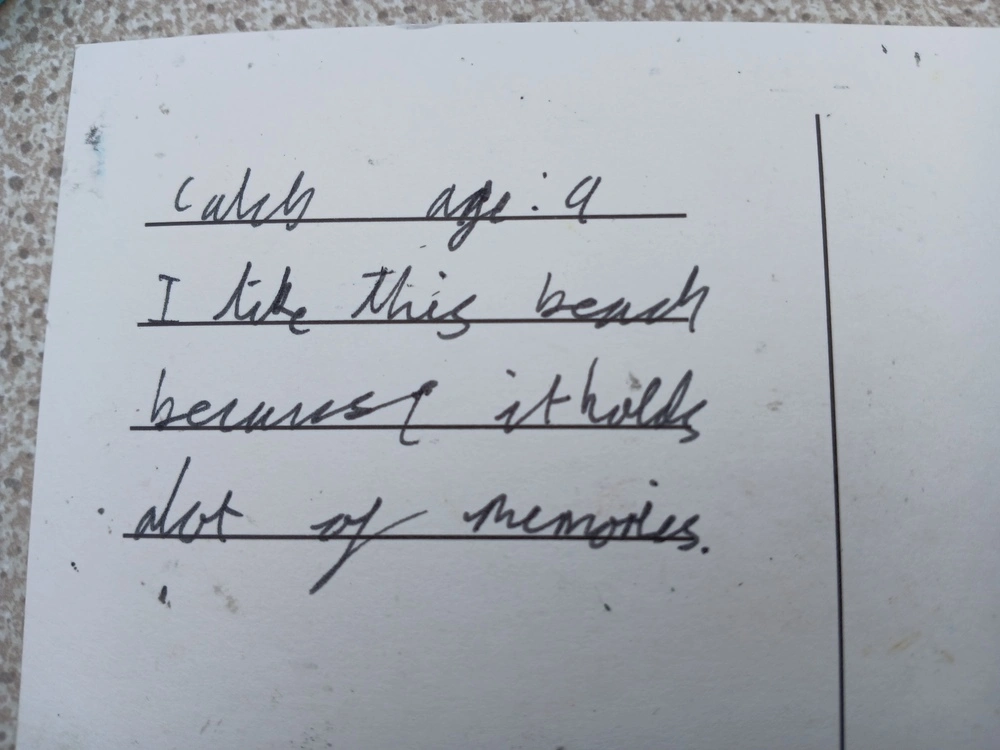 Caleb age: 9
I like this beach
because it holds
alot of memories.